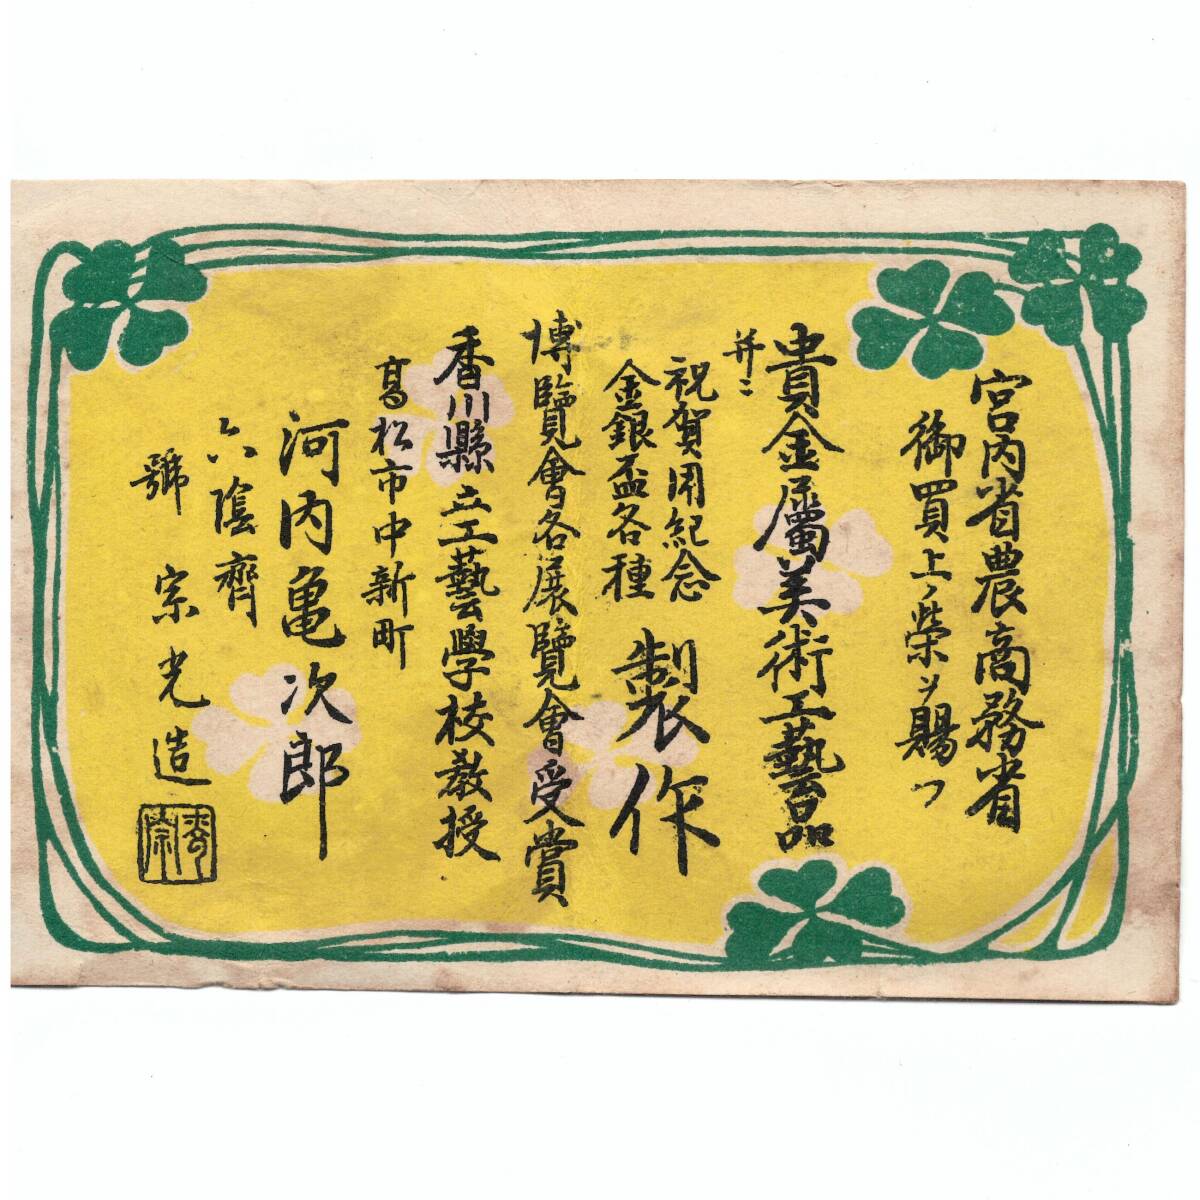 宮内省農商務省
御買上ノ榮ヲ賜フ
貴金屬美術工藝品
并ニ
祝賀用紀念
金銀盃各種
製作
博覽會各展覽會受賞
香川縣立工藝學校教授
髙松市中新町
河内亀次郎
六陰齊
號宗光造